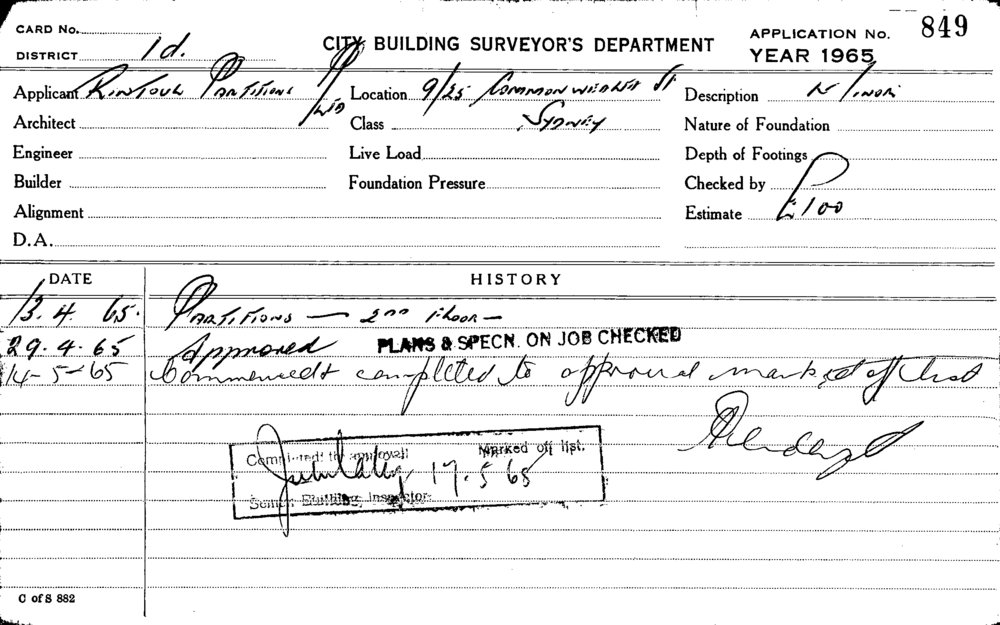 CARD No.
DISTRICT 1d.
CITY BUILDING SURVEYOR'S DEPARTMENT
APPLICATION No. 849
YEAR 1965
Applicant Rintoul Partitions P/LTD
Location 9/25 Commonwealth St
Sydney
Description Minor
Architect
Class
Nature of Foundation
Engineer
Live Load
Depth of Footings
Builder
Foundation Pressure
Checked by
Alignment
Estimate £100
D.A.
DATE HISTORY
13. 4. 65. Partitions — 2nd Floor —
29. 4. 65 Approved PLANS & SPECN. ON JOB CHECKED
14-5-65 Commenced & completed to approval marked off list
Completed to approval Marked off list.
17. 5 65
Senior Building Inspector
C of S 882